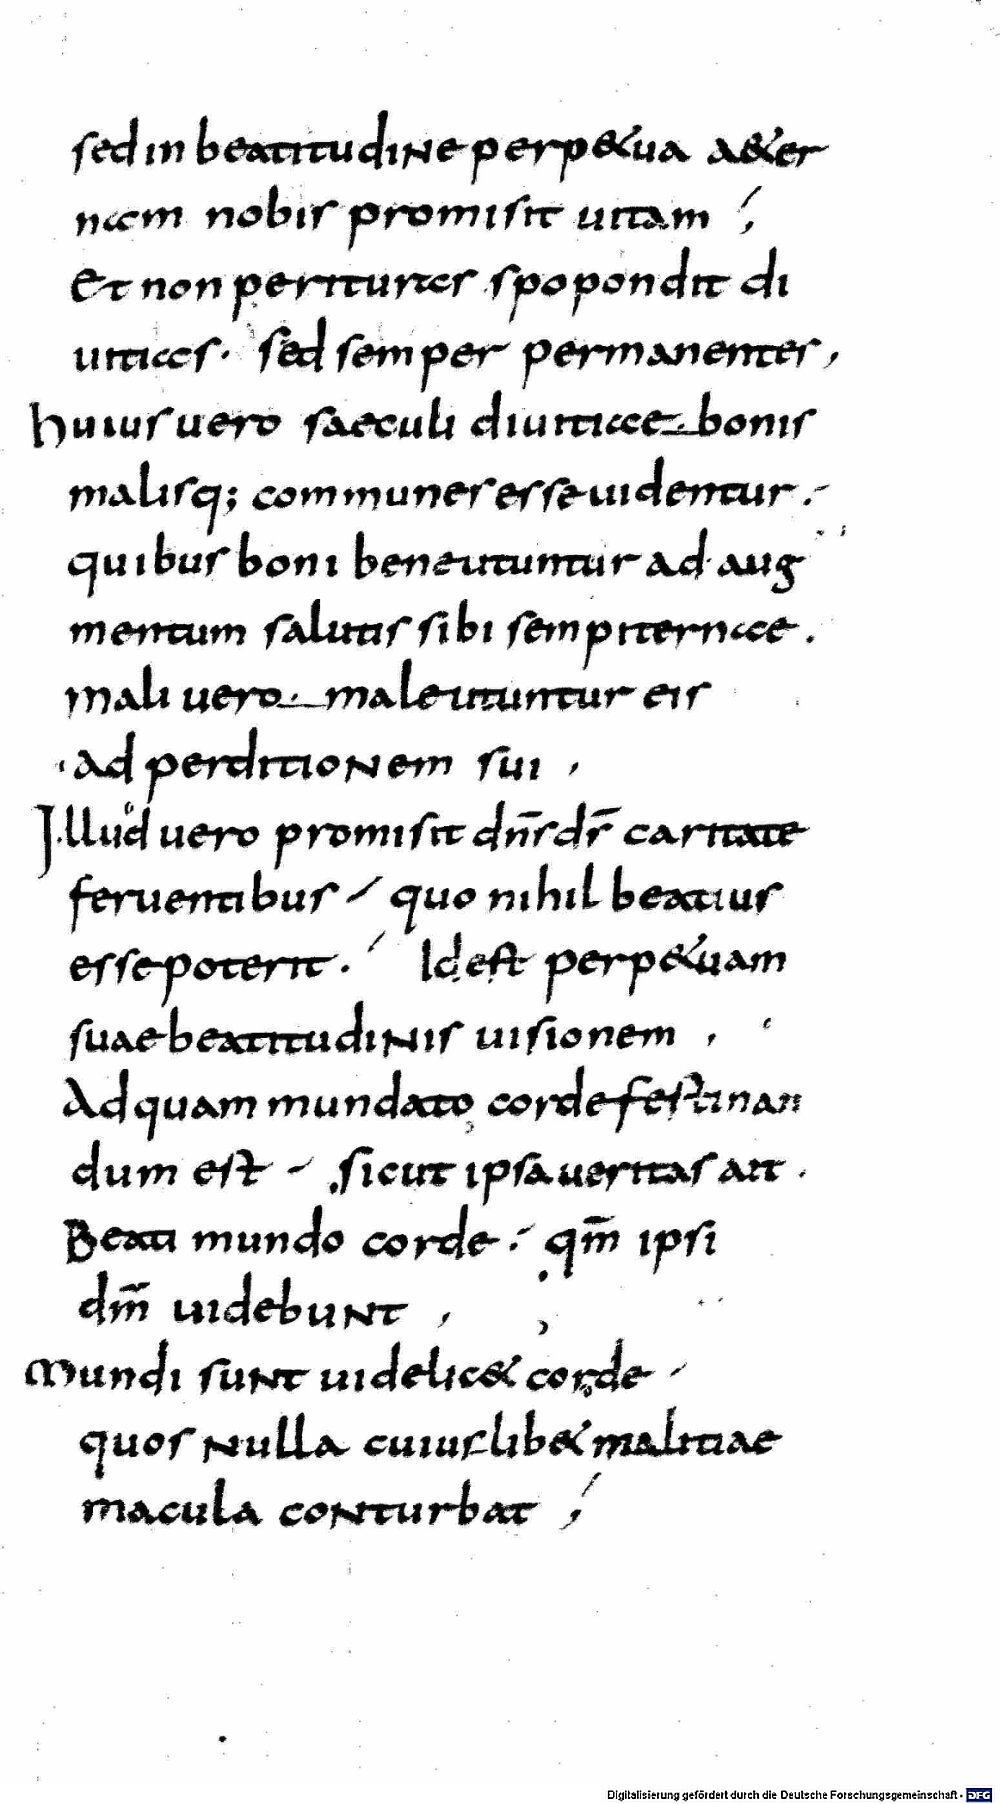 sed in beatitudine perp&ua a&er
nam nobis promisit uitam ;
Et non perituras spopondit di
uitias · sed semper permanentes ,
huius uero saeculi diuitiae · bonis
malisq; communes esse uidentur ·
quibus boni bene utuntur ad aug
mentum salutis sibi sempiternae .
mali uero · male utuntur eis
ad perditionem sui ,
Illud uero promisit dn̄s dr̄ caritate
feruentibus / quo nihil beatius
esse poterit · Id est perp&uam
suae beatitudinis uisionem ,
Ad quam mundato corde festinan
dum est - sicut ipsa ueritas ait .
Beati mundo corde · qm̄ ipsi
dm̄ uidebunt ,
Mundi sunt uidelic& corde -
quos nulla cuiuslib& malitiae
macula conturbat ;
Digitalisierung gefördert durch die Deutsche Forschungsgemeinschaft - DFG